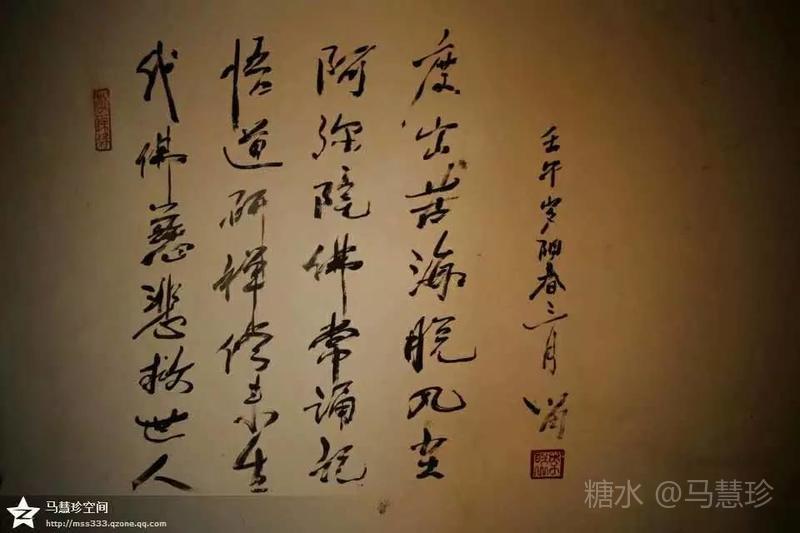 我佛慈悲救世人
悟道研禅修来生
阿弥陀佛常诵记
度出苦海脱凡尘
壬午岁阳春三月
马慧珍空间
http://mss333.qzone.qq.com
糖水 @马慧珍